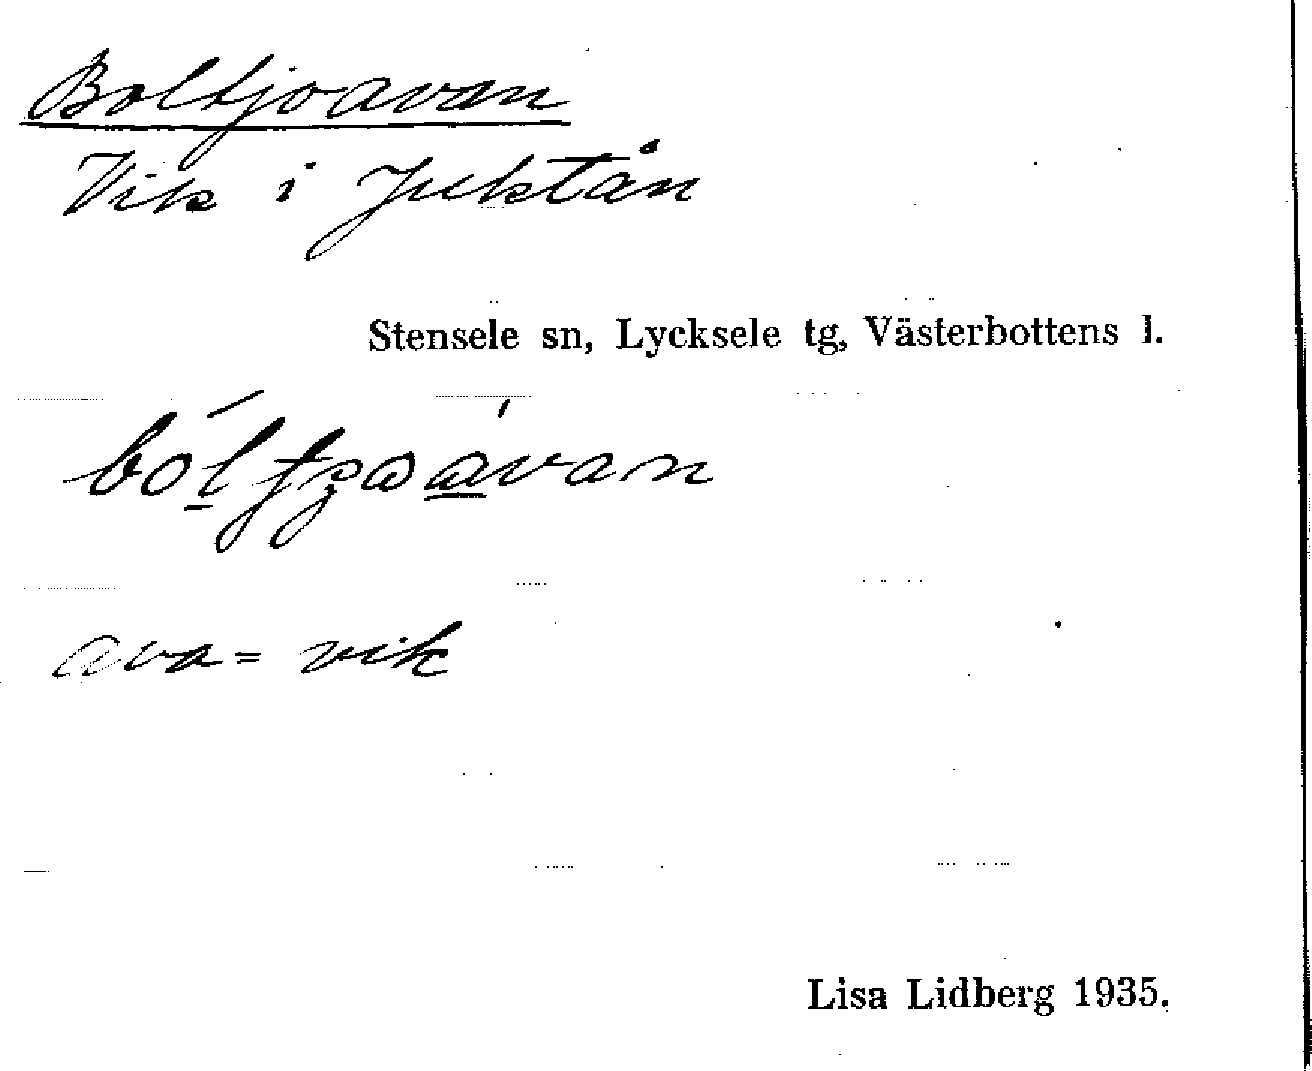 Boltjoavan
Vik i Juktån
Stensele sn, Lycksele tg, Västerbottens l.
ava = vik
Lisa Lidberg 1935.